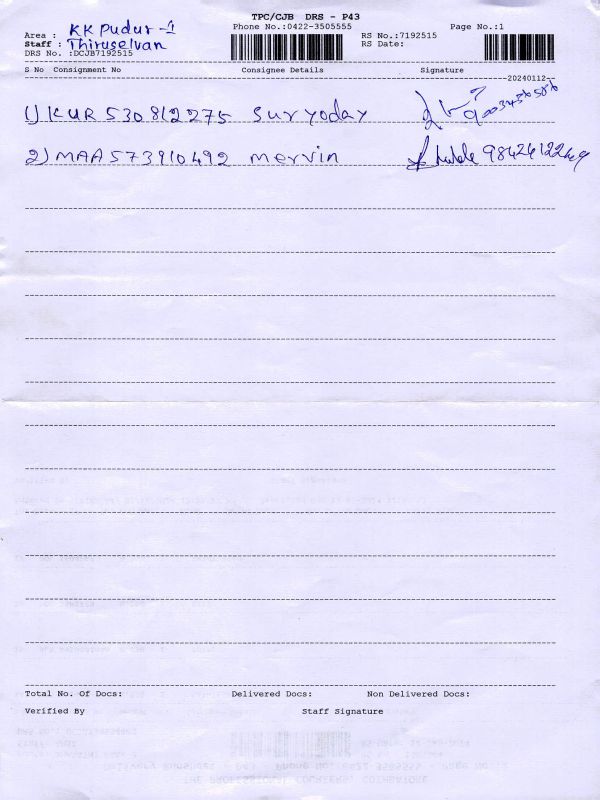 TPC/CJB DRS - P43
Area : KK Pudur -1 Phone No.:0422-3505555 Page No.:1
Staff : Thiruselvan RS No.:7192515
DRS No. :DCJB7192515 RS Date:
S No Consignment No Consignee Details Signature
20240112
1) KUR 530812275 Suryoday
2) MAA 573910492 Mervin
Total No. Of Docs: Delivered Docs: Non Delivered Docs:
Verified By Staff Signature